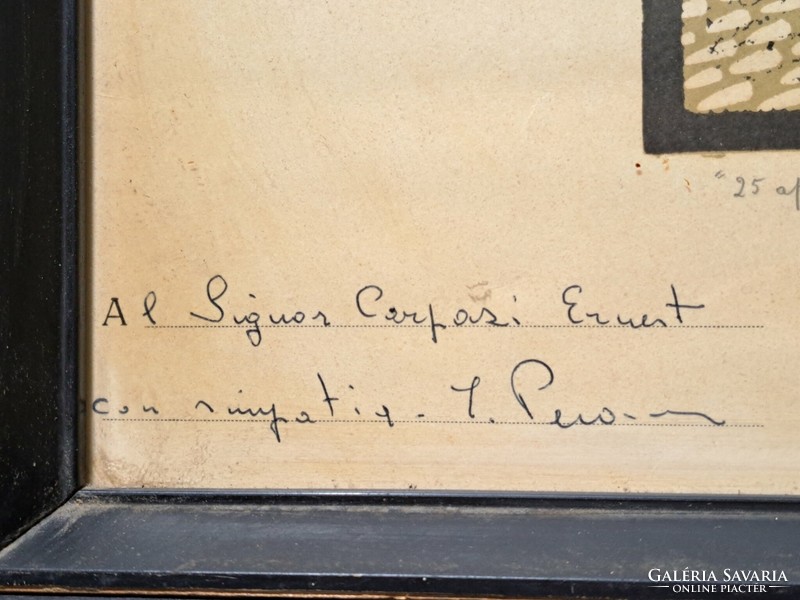 "25 af
Al Signor Carpazi Ernest
con simpatia - 
GALÉRIA SAVARIA
ONLINE PIACTÉR